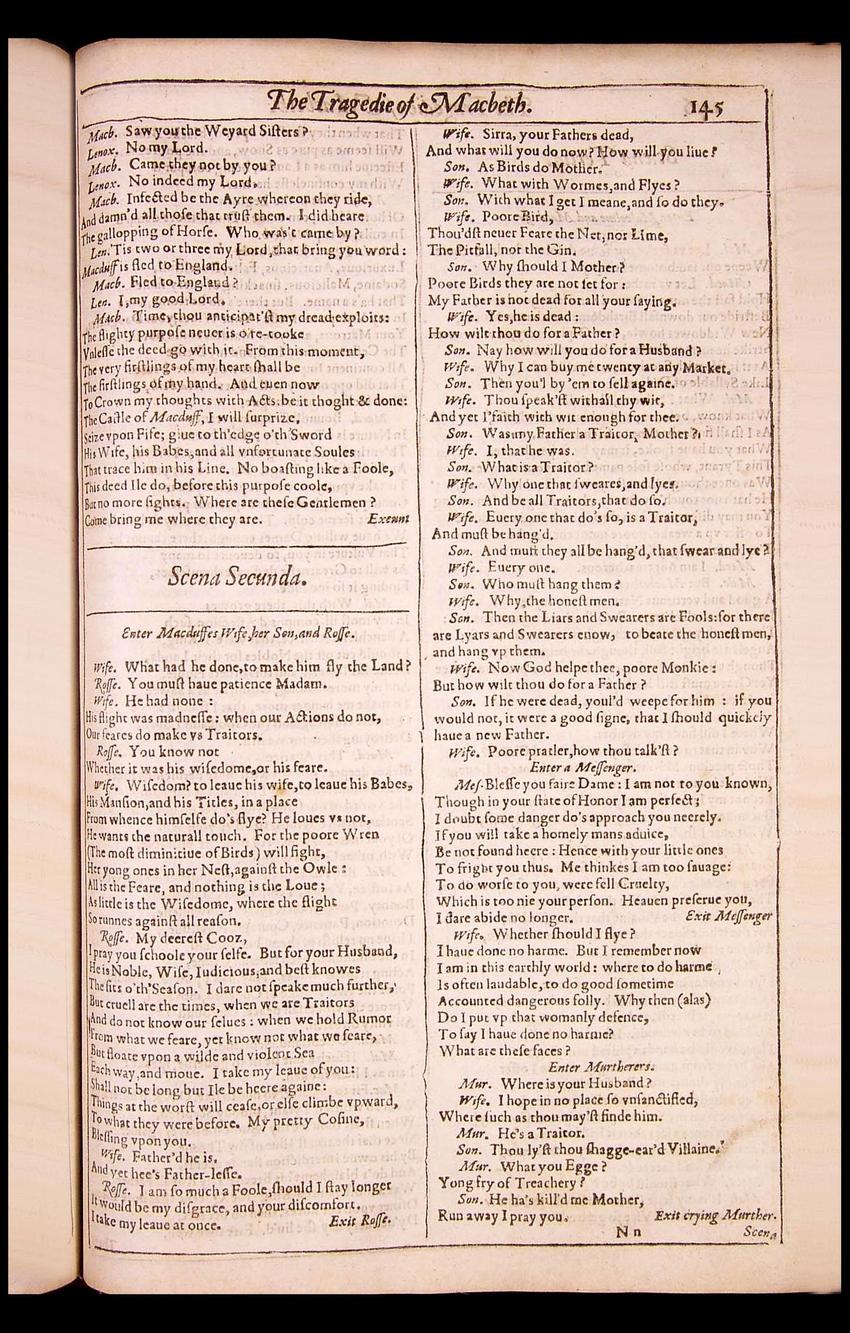 The Tragedie of Macbeth. 145
Macb. Saw you the Weyard Sisters?
Lenox. No my Lord.
Macb. Came they not by you?
Lenox. No indeed my Lord.
Macb. Infected be the Ayre whereon they ride,
And damn'd all those that trust them. I did heare
The gallopping of Horse. Who was't came by?
Len. 'Tis two or three my Lord, that bring you word:
Macduff is fled to England.
Macb. Fled to England?
Len. I, my good Lord.
Macb. Time, thou anticipat'st my dread exploits:
The flighty purpose neuer is o're-tooke
Vnlesse the deed go with it. From this moment,
The very firstlings of my heart shall be
The firstlings of my hand. And euen now
To Crown my thoughts with Acts: be it thoght & done:
The Castle of Macduff, I will surprize,
Seize vpon Fife; giue to th'edge o'th'Sword
His Wife, his Babes, and all vnfortunate Soules
That trace him in his Line. No boasting like a Foole,
This deed Ile do, before this purpose coole,
But no more sights. Where are these Gentlemen?
Come bring me where they are. Exeunt
Scena Secunda.
Enter Macduffes Wife, her Son, and Rosse.
Wife. What had he done, to make him fly the Land?
Rosse. You must haue patience Madam.
Wife. He had none:
His flight was madnesse: when our Actions do not,
Our feares do make vs Traitors.
Rosse. You know not
Whether it was his wisedome, or his feare.
Wife. Wisedom? to leaue his wife, to leaue his Babes,
His Mansion, and his Titles, in a place
From whence himselfe do's flye? He loues vs not,
He wants the naturall touch. For the poore Wren
(The most diminitiue of Birds) will fight,
Her yong ones in her Nest, against the Owle:
All is the Feare, and nothing is the Loue;
As little is the Wisedome, where the flight
So runnes against all reason.
Rosse. My deerest Cooz,
I pray you schoole your selfe. But for your Husband,
He is Noble, Wise, Iudicious, and best knowes
The fits o'th'Season. I dare not speake much further,
But cruell are the times, when we are Traitors
And do not know our selues: when we hold Rumor
From what we feare, yet know not what we feare,
But floate vpon a wilde and violent Sea
Each way, and moue. I take my leaue of you:
Shall not be long but Ile be heere againe:
Things at the worst will cease, or else climbe vpward,
To what they were before. My pretty Cosine,
Blessing vpon you.
Wife. Father'd he is,
And yet hee's Father-lesse.
Rosse. I am so much a Foole, should I stay longer
It would be my disgrace, and your discomfort.
I take my leaue at once. Exit Rosse.
Wife. Sirra, your Fathers dead,
And what will you do now? How will you liue?
Son. As Birds do Mother.
Wife. What with Wormes, and Flyes?
Son. With what I get I meane, and so do they.
Wife. Poore Bird,
Thou'dst neuer Feare the Net, nor Lime,
The Pitfall, nor the Gin.
Son. Why should I Mother?
Poore Birds they are not set for:
My Father is not dead for all your saying.
Wife. Yes, he is dead:
How wilt thou do for a Father?
Son. Nay how will you do for a Husband?
Wife. Why I can buy me twenty at any Market.
Son. Then you'l by 'em to sell againe.
Wife. Thou speak'st withall thy wit,
And yet I'faith with wit enough for thee.
Son. Was my Father a Traitor, Mother?
Wife. I, that he was.
Son. What is a Traitor?
Wife. Why one that sweares, and lyes.
Son. And be all Traitors, that do so.
Wife. Euery one that do's so, is a Traitor,
And must be hang'd.
Son. And must they all be hang'd, that swear and lye?
Wife. Euery one.
Son. Who must hang them?
Wife. Why, the honest men.
Son. Then the Liars and Swearers are Fools: for there
are Lyars and Swearers enow, to beate the honest men,
and hang vp them.
Wife. Now God helpe thee, poore Monkie:
But how wilt thou do for a Father?
Son. If he were dead, youl'd weepe for him: if you
would not, it were a good signe, that I should quickely
haue a new Father.
Wife. Poore pratler, how thou talk'st?
Enter a Messenger.
Mes. Blesse you faire Dame: I am not to you known,
Though in your state of Honor I am perfect;
I doubt some danger do's approach you neerely.
If you will take a homely mans aduice,
Be not found heere: Hence with your little ones
To fright you thus. Me thinkes I am too sauage:
To do worse to you, were fell Cruelty,
Which is too nie your person. Heauen preserue you,
I dare abide no longer. Exit Messenger
Wife. Whether should I flye?
I haue done no harme. But I remember now
I am in this earthly world: where to do harme
Is often laudable, to do good sometime
Accounted dangerous folly. Why then (alas)
Do I put vp that womanly defence,
To say I haue done no harme?
What are these faces?
Enter Murtherers.
Mur. Where is your Husband?
Wife. I hope in no place so vnsanctified,
Where such as thou may'st finde him.
Mur. He's a Traitor.
Son. Thou ly'st thou shagge-ear'd Villaine.
Mur. What you Egge?
Yong fry of Treachery?
Son. He ha's kill'd me Mother,
Run away I pray you. Exit crying Murther.
N n Scena